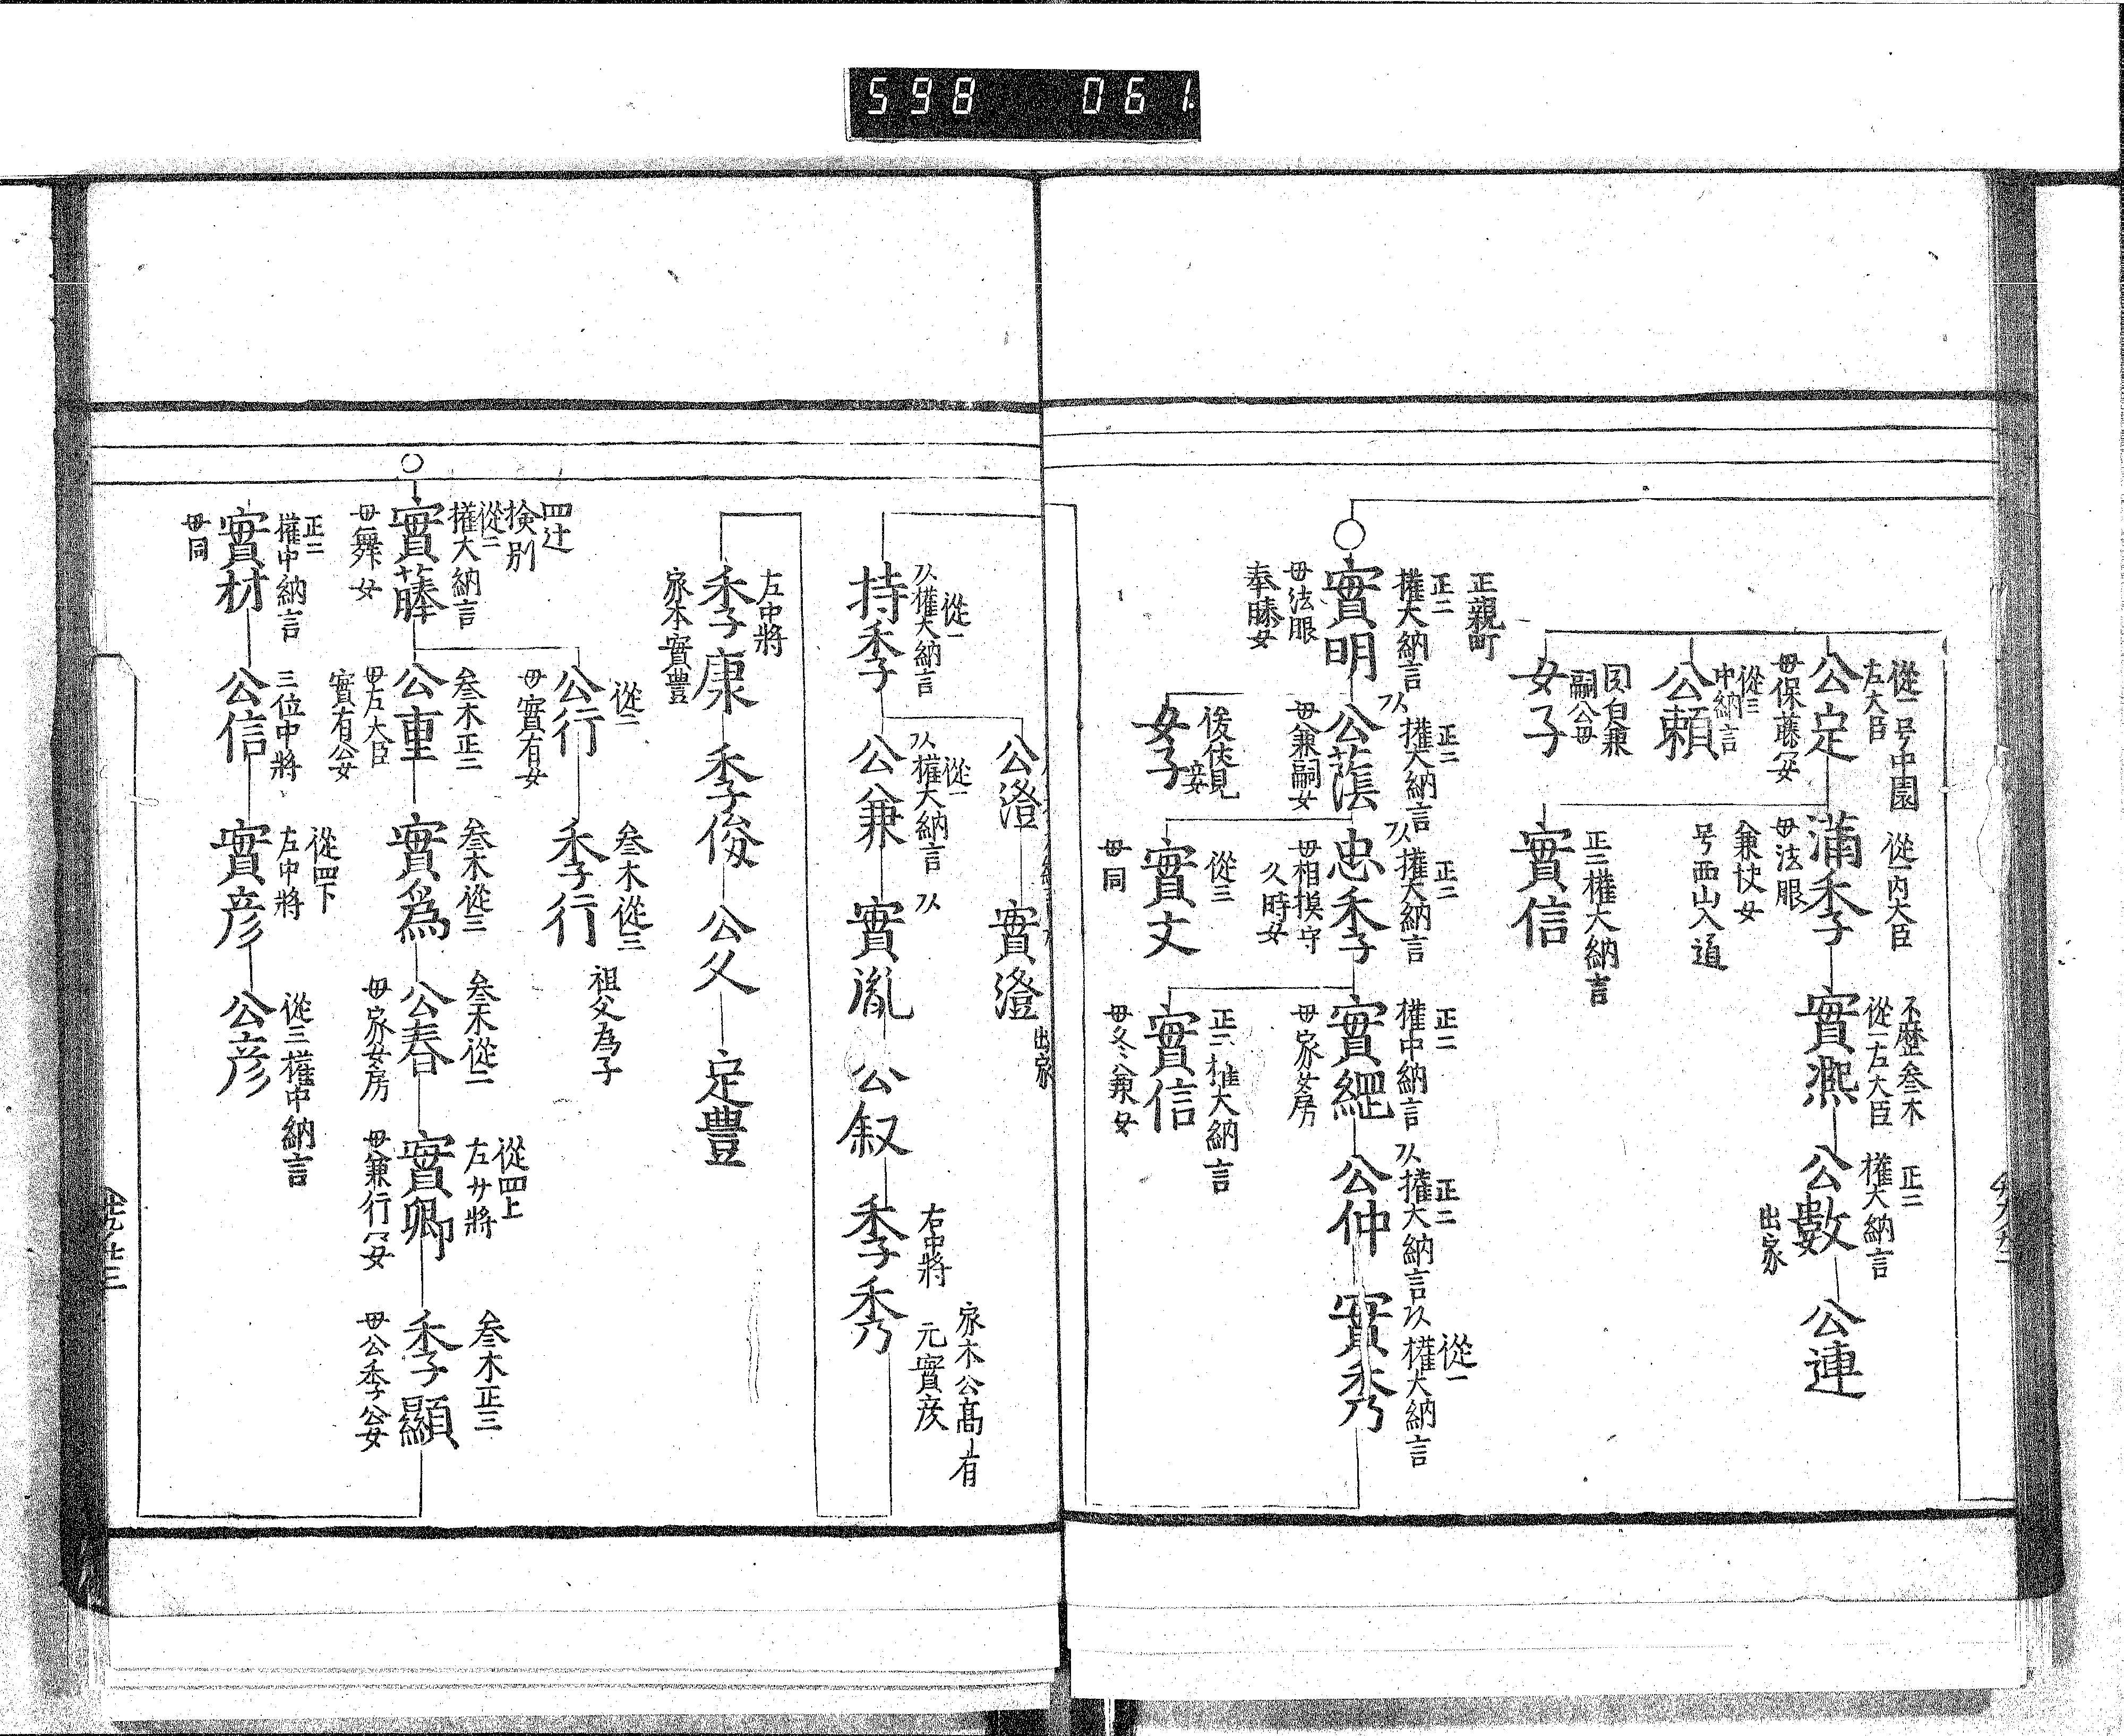 598 061.
從一号中園
左大臣
公定
母保藤㝡女
從三
中納言
公頼
関白兼
嗣公母
女子
從一内大臣
蒲季
母法眼
兼快女
号西山入道
正二権大納言
實信
不歴叅木
從一左大臣
實凞
正二
権大納言
公數
出家
公連
正親町
正二
権大納言
實明
母法眼
奉睞女
正二
权大納言
公蔭
母兼嗣女
後伏見
妾
女子
正二
权大納言
忠季
母相摸守
久時女
從三
實文
母同
正二
権中納言
實綱
母家女房
正二権大納言
實信
母冬兼女
正二
权大納言
公仲
從一
权大納言
實秀
公澄
實澄
出家
從一
权大納言
持季
從一
权大納言
公兼
实胤
公叙
右中將
季秀
家木公髙有
元實彦
左中將
季康
家本實豊
季俊
公久
定豊
四辻
掞別
從二
権大納言
實藤
母舞女
從二
公行
母實有女
叅木從三
季行
祖父為子
叅木正二
公重
母左大臣
實有公女
叅木從三
實為
叅木從二
公春
母家女房
從四上
左少將
實卿
母兼行㝡女
叅木正三
季顯
母公季公女
正二
権中納言
實材
母同
三位中將
公信
從四下
左中將
實彦
從三権中納言
公彦